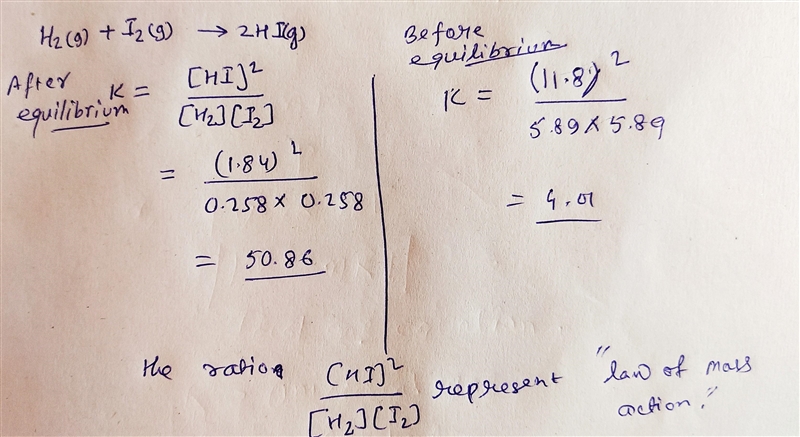 H₂(g) + I₂(g) → 2HI(g)
After equilibrium K = [HI]² / [H₂][I₂]
= (1.84)² / 0.258 × 0.258
= 50.86
Before equilibrium
K = (11.8)² / 5.89 × 5.89
= 4.01
the ration [HI]² / [H₂][I₂] represent "law of mass action."